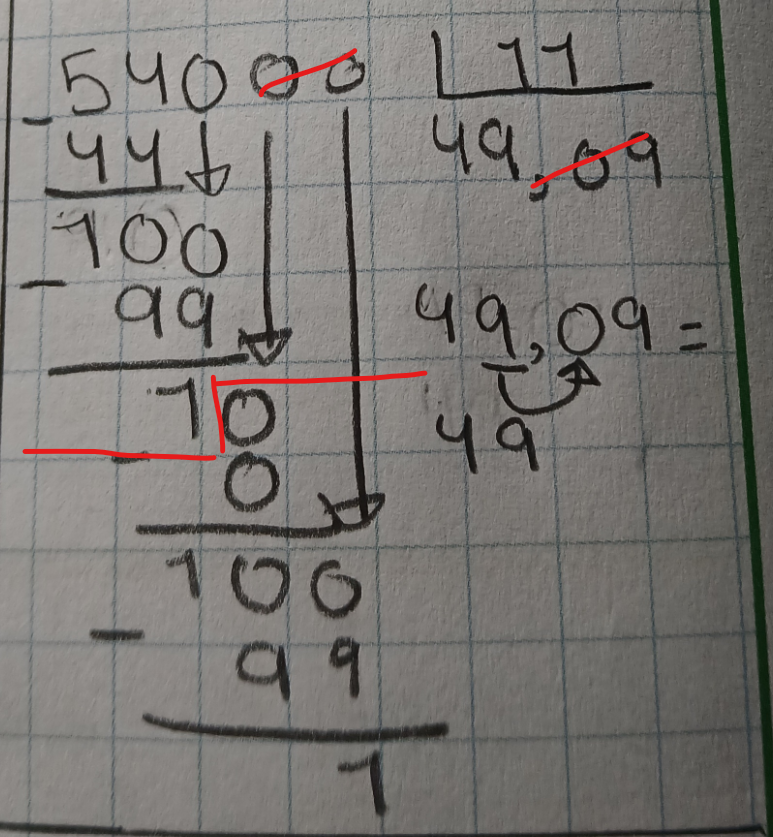 54000 11
- 44 49,09
100
- 99 49,09 =
10 49
- 0
100
- 99
1